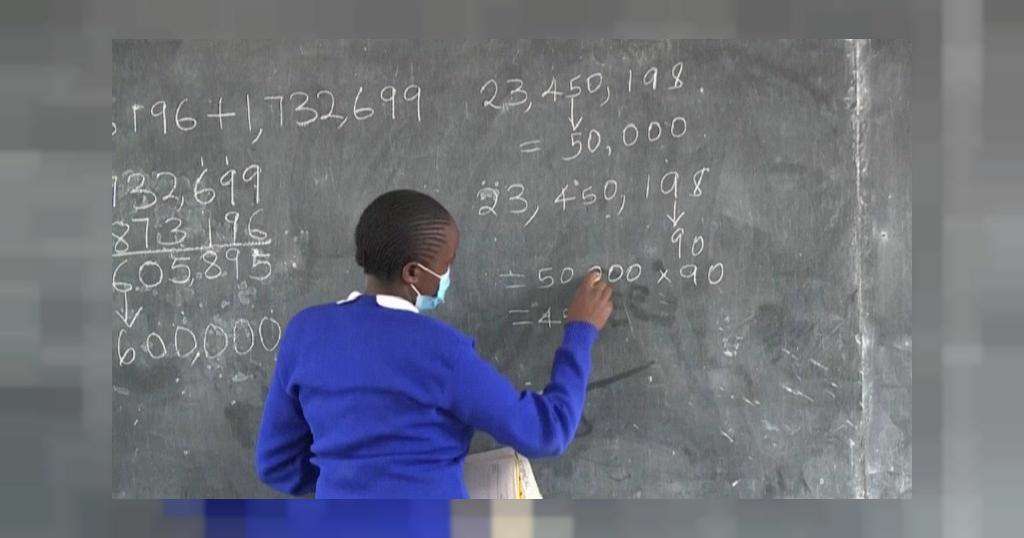 ,196+1,732,699
732,699
873,196
605,895
600,000
23,450,198.
= 50,000
23,450,198
90
= 50 000 x 90
= 4